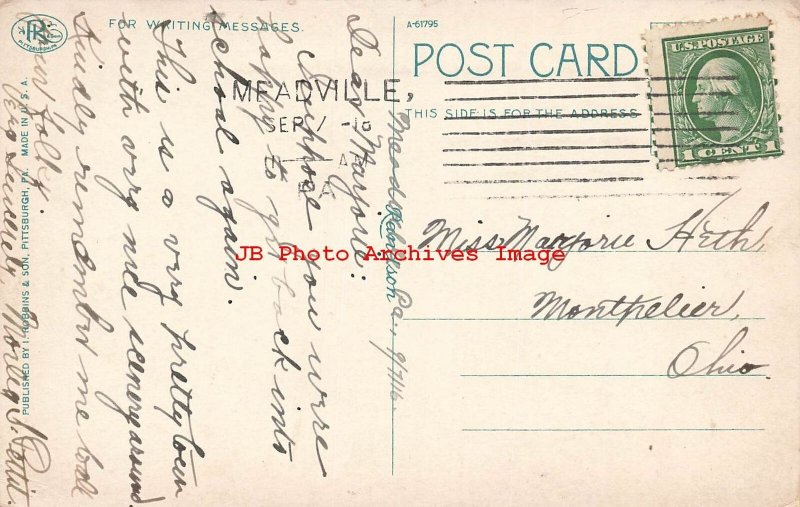 FOR WRITING MESSAGES.
A-61795
POST CARD
THIS SIDE IS FOR THE ADDRESS
U.S. POSTAGE
1 CENT 1
MEADVILLE,
SEP 7 -16
AM
PA
PITTSBURGH, PA.
PUBLISHED BY I. ROBBINS & SON, PITTSBURGH, PA. MADE IN U.S.A.
JB Photo Archives Image
Pa., 9/7/16
Dear Marjorie:
I suppose you were
happy to get back into
school again.
This is a very pretty town
with very nice scenery around.
Kindly remember me to all
your folks.
Very sincerely,
Miss Marjorie Heth,
Montpelier,
Ohio.